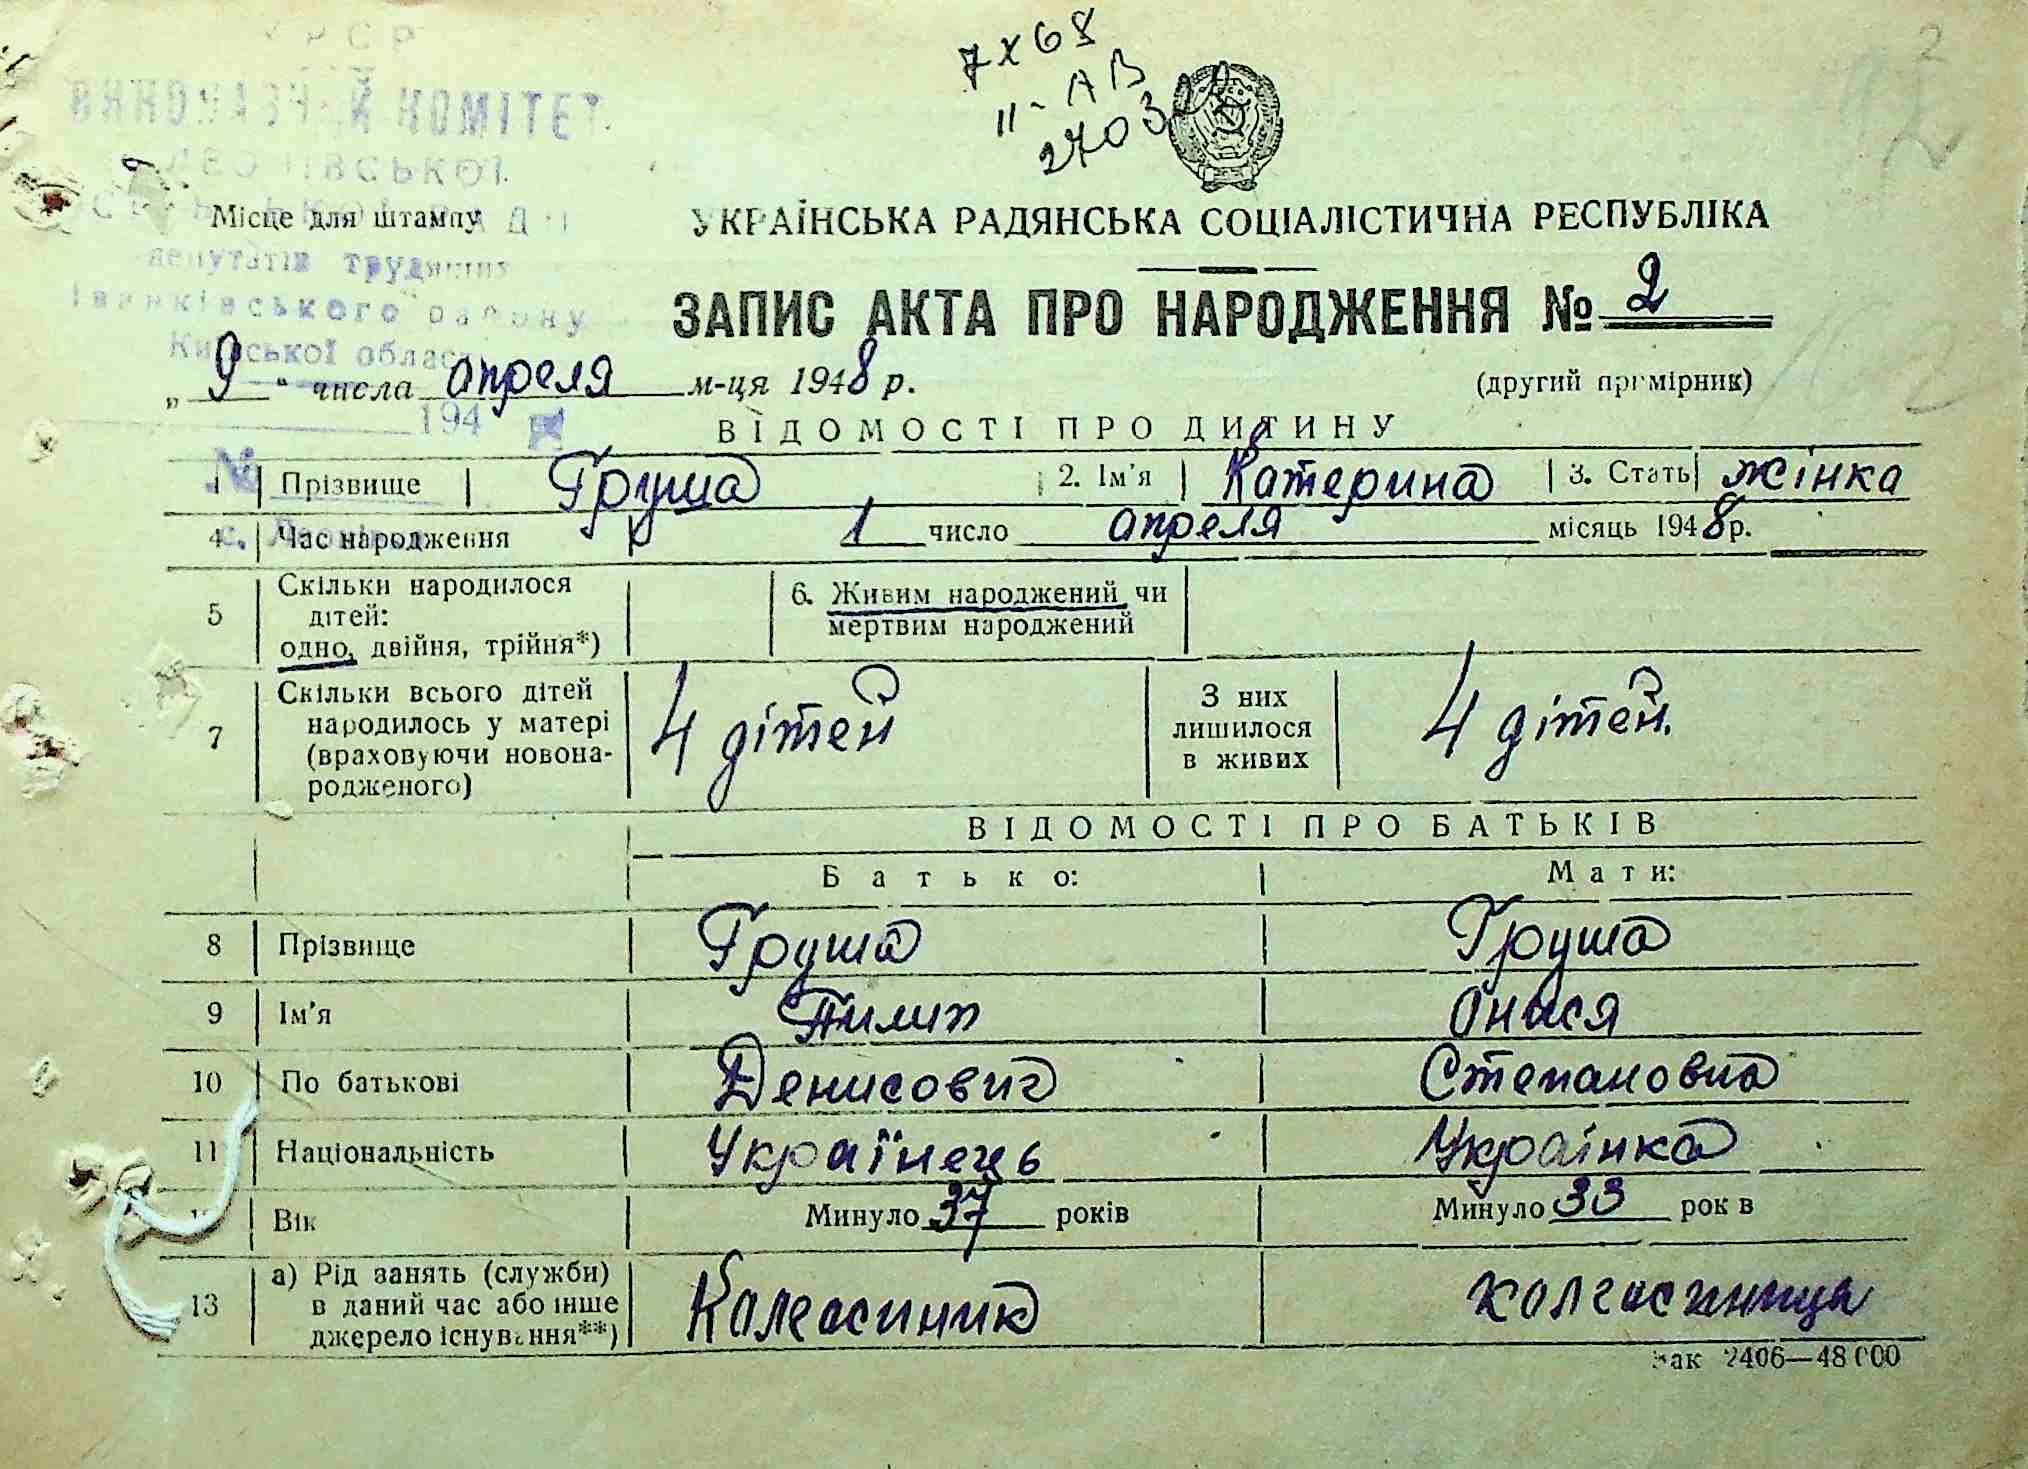 7 X 68
II-АВ
2
УРСР
ВИКОНАВЧИЙ КОМІТЕТ
депутатів трудящих
Іванківського району
Київської області
194
№
Місце для штампу
УКРАЇНСЬКА РАДЯНСЬКА СОЦІАЛІСТИЧНА РЕСПУБЛІКА
ЗАПИС АКТА ПРО НАРОДЖЕННЯ № 2
„ 9 “ числа апреля м-ця 1948 р.
(другий примірник)
ВІДОМОСТІ ПРО ДИТИНУ
1 Прізвище Груша 2. Ім'я Катерина 3. Стать жінка
4 Час народження 1 число апреля місяць 1948 р.
5 Скільки народилося дітей: одно, двійня, трійня*) 6. Живим народжений чи мертвим народжений
7 Скільки всього дітей народилось у матері (враховуючи новонародженого) 4 дітей З них лишилося в живих 4 дітей.
ВІДОМОСТІ ПРО БАТЬКІВ
Батько: Мати:
8 Прізвище Груша Груша
9 Ім'я Пилип Онися
10 По батькові Денисович Степановна
11 Національність Українець Українка
12 Вік Минуло 37 років Минуло 33 років
13 а) Рід занять (служби) в даний час або інше джерело існування**) Колгоспник колгоспниця
Зак 2406—48 000